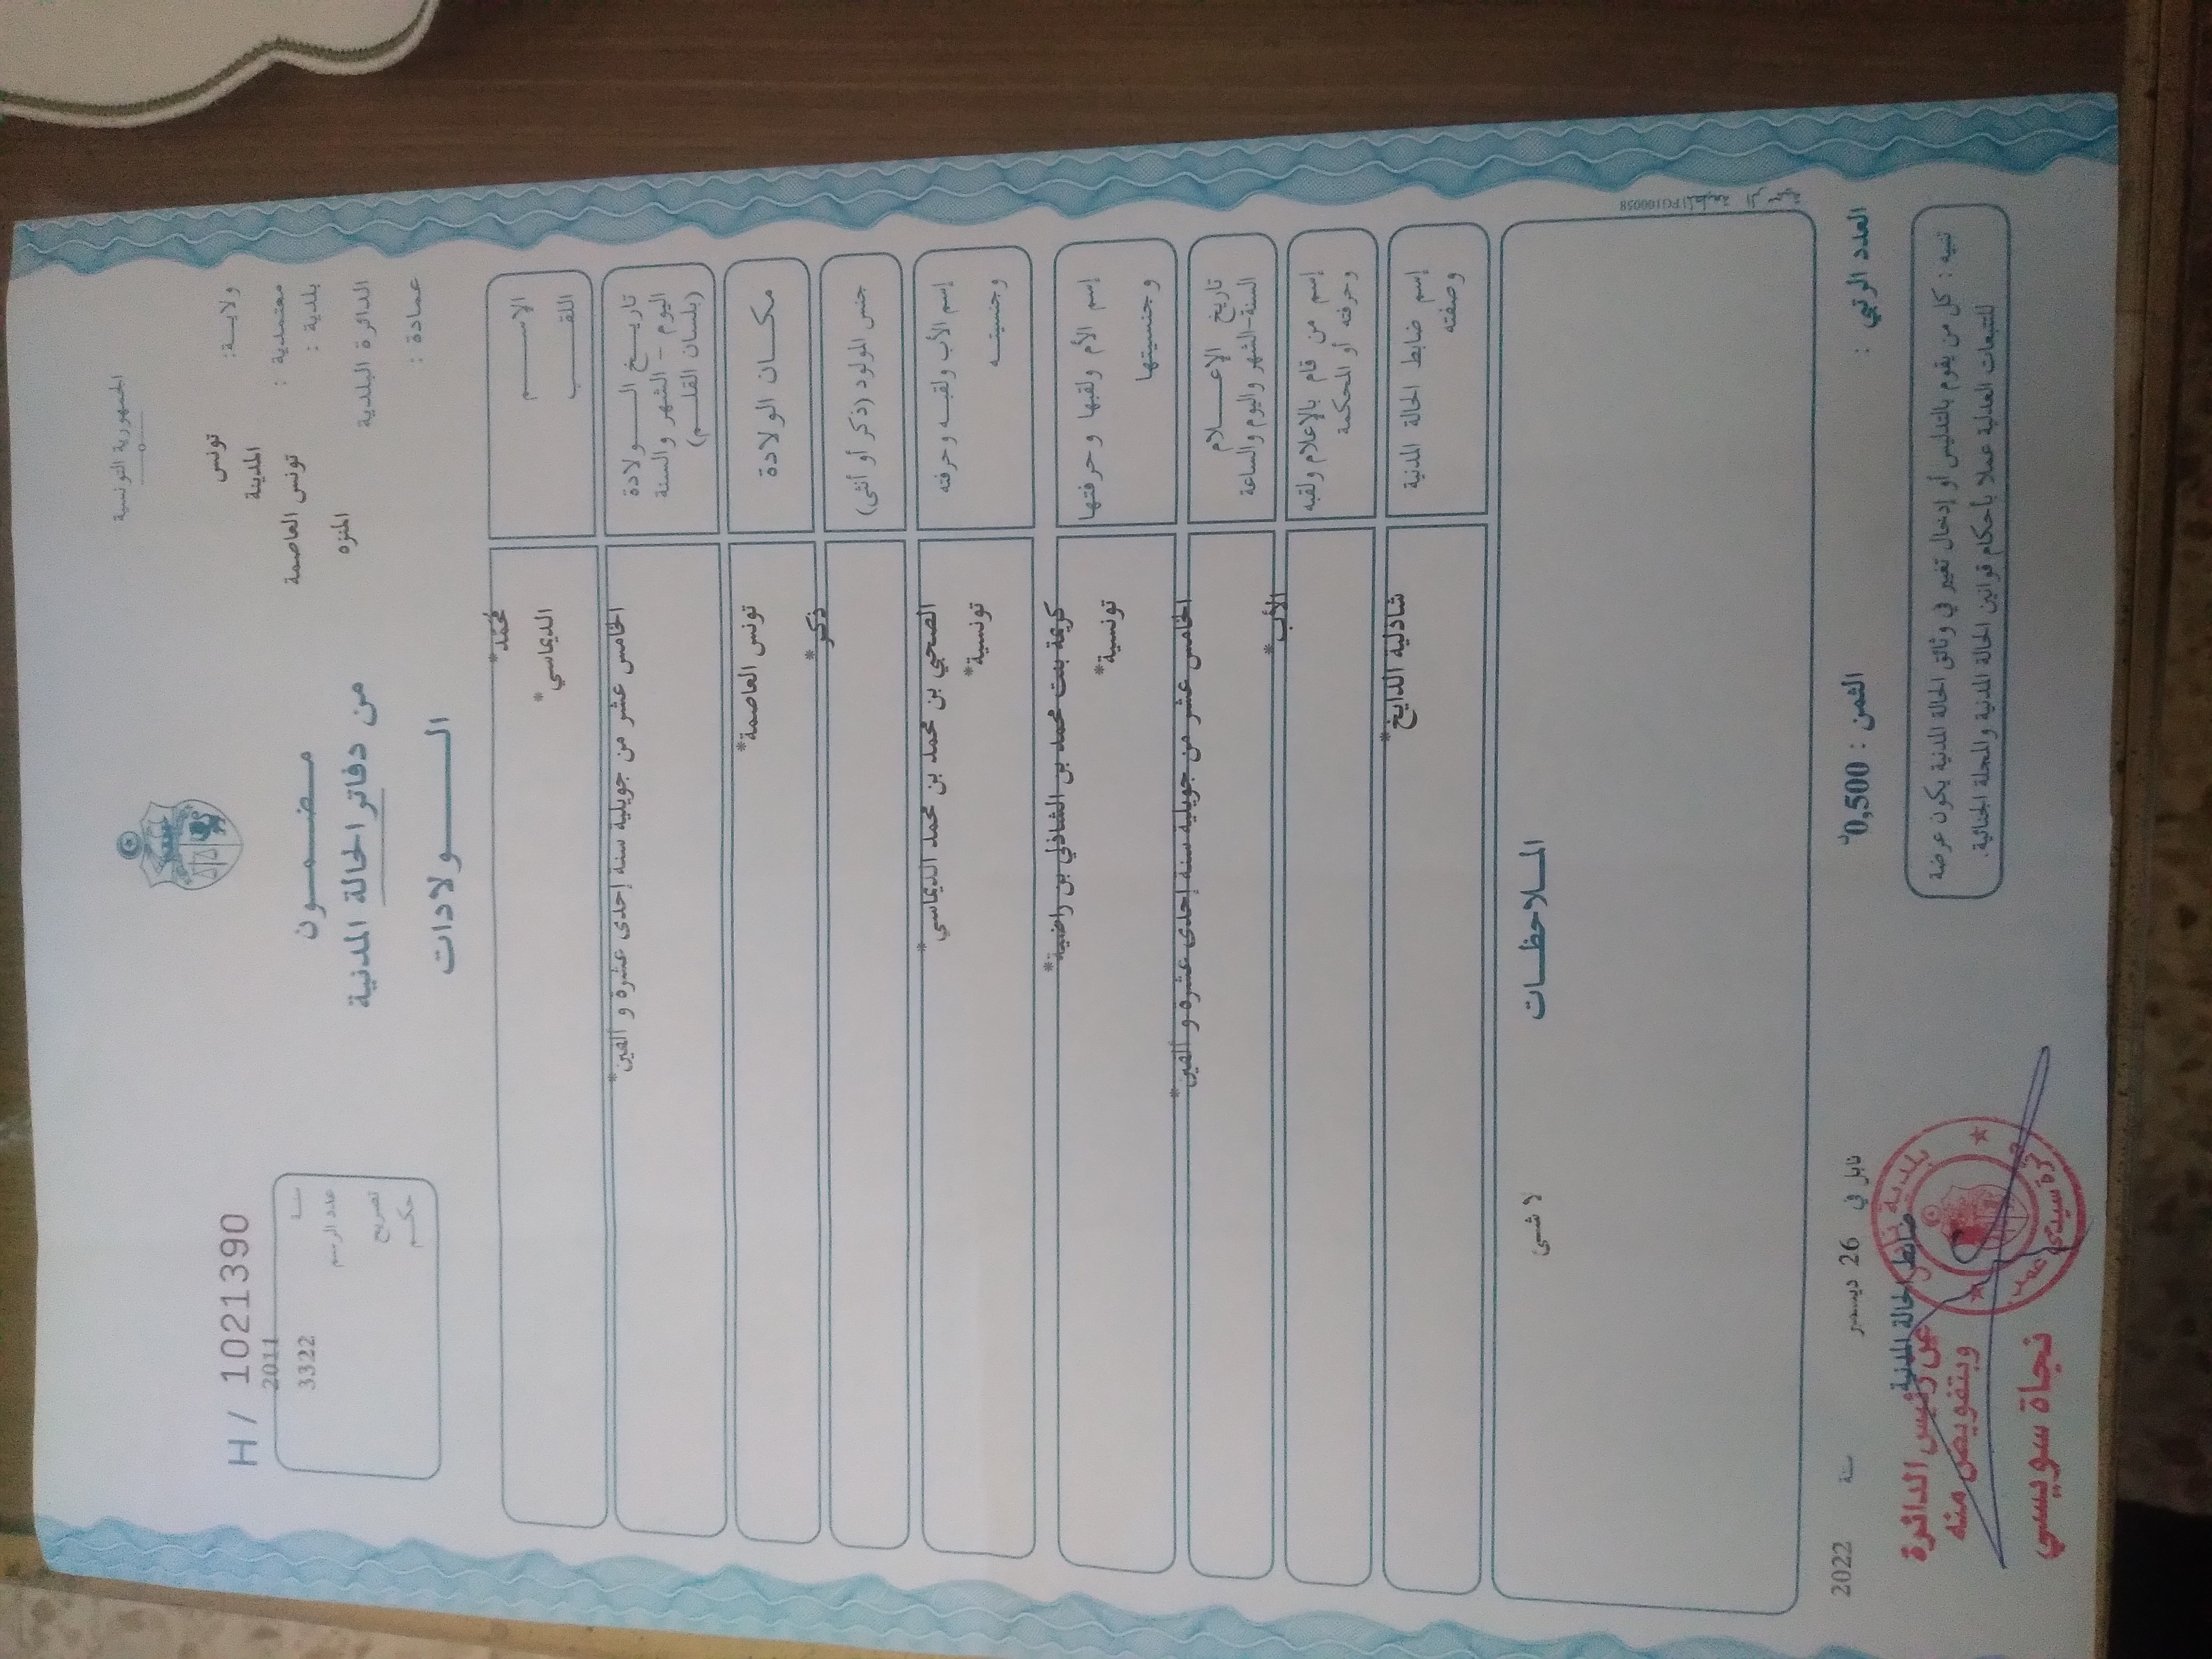 الجمهورية التونسية
ولاية: تونس
معتمدية : المدينة
بلدية : تونس العاصمة
الدائرة البلدية المنزه
عمادة :
مضمون
من دفاتر الحالة المدنية
الولادات
H / 1021390
سنة 2011
عدد الرسم 3322
تصريح
حكم
الاسم محمد*
اللقب الديماسي*
تاريخ الولادة
اليوم - الشهر والسنة
(بلسان القلم)
الخامس عشر من جويلية سنة إحدى عشرة و ألفين*
مكان الولادة تونس العاصمة*
جنس المولود (ذكر أو أنثى) ذكر*
إسم الأب ولقبه وحرفته الصحبي بن محمد بن محمد الديماسي*
وجنسيته تونسية*
إسم الأم ولقبها وحرفتها كريمة بنت محمد بن الشاذلي بن راضية*
وجنسيتها تونسية*
تاريخ الإعلام
السنة-الشهر واليوم والساعة
الخامس عشر من جويلية سنة إحدى عشرة و ألفين*
إسم من قام بالإعلام ولقبه الأب*
وحرفته أو المحكمة
إسم ضابط الحالة المدنية شاذلية الدايخ*
وصفته
الملاحظات
لا شئ
العدد الرتبي :
الثمن : 0,500
نابل في 26 ديسمبر سنة 2022
تنبيه : كل من يقوم بالتدليس أو إدخال تغيير في وثائق الحالة المدنية يكون عرضة
للتتبعات العدلية عملا بأحكام قوانين الحالة المدنية والمجلة الجنائية.
ضابط الحالة المدنية
عن رئيس الدائرة
وبتفويض منه
نجاة سويسي